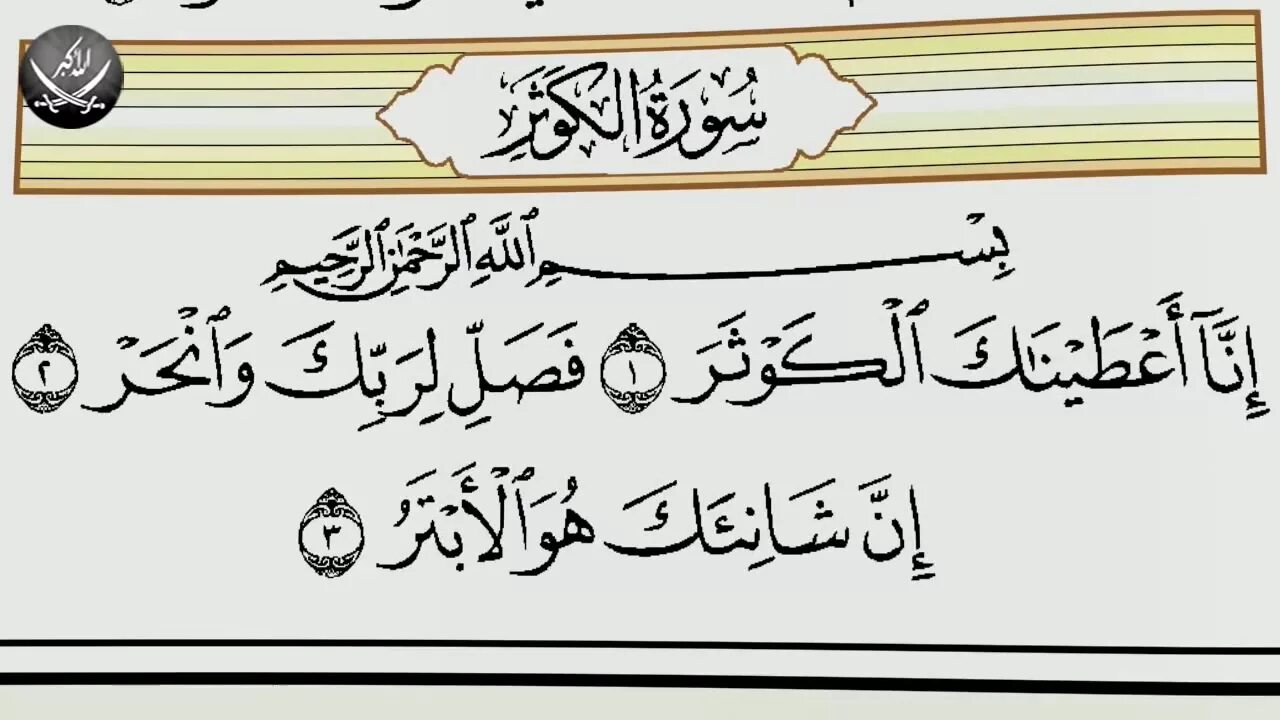 الله أكبر
سُورَةُ الكَوْثَرِ
بِسْمِ ٱللَّهِ ٱلرَّحْمَٰنِ ٱلرَّحِيمِ
إِنَّآ أَعْطَيْنَٰكَ ٱلْكَوْثَرَ ١ فَصَلِّ لِرَبِّكَ وَٱنْحَرْ ٢
إِنَّ شَانِئَكَ هُوَ ٱلْأَبْتَرُ ٣